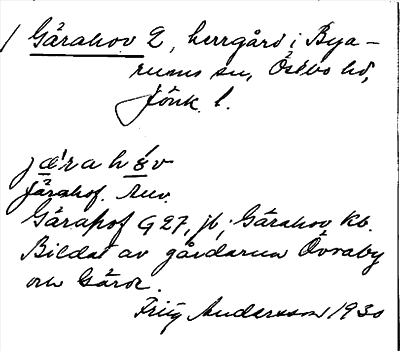 Gårahov 2, herrgård i Bya-
rums sn, Östbo hd,
Jönk. l.
järahåv
Järahof. Anv.
Gärahof G 27, jb, Gårahov Kb.
Bildat av gårdarna Övraby
och Gårö.
Frity Andersson 1930